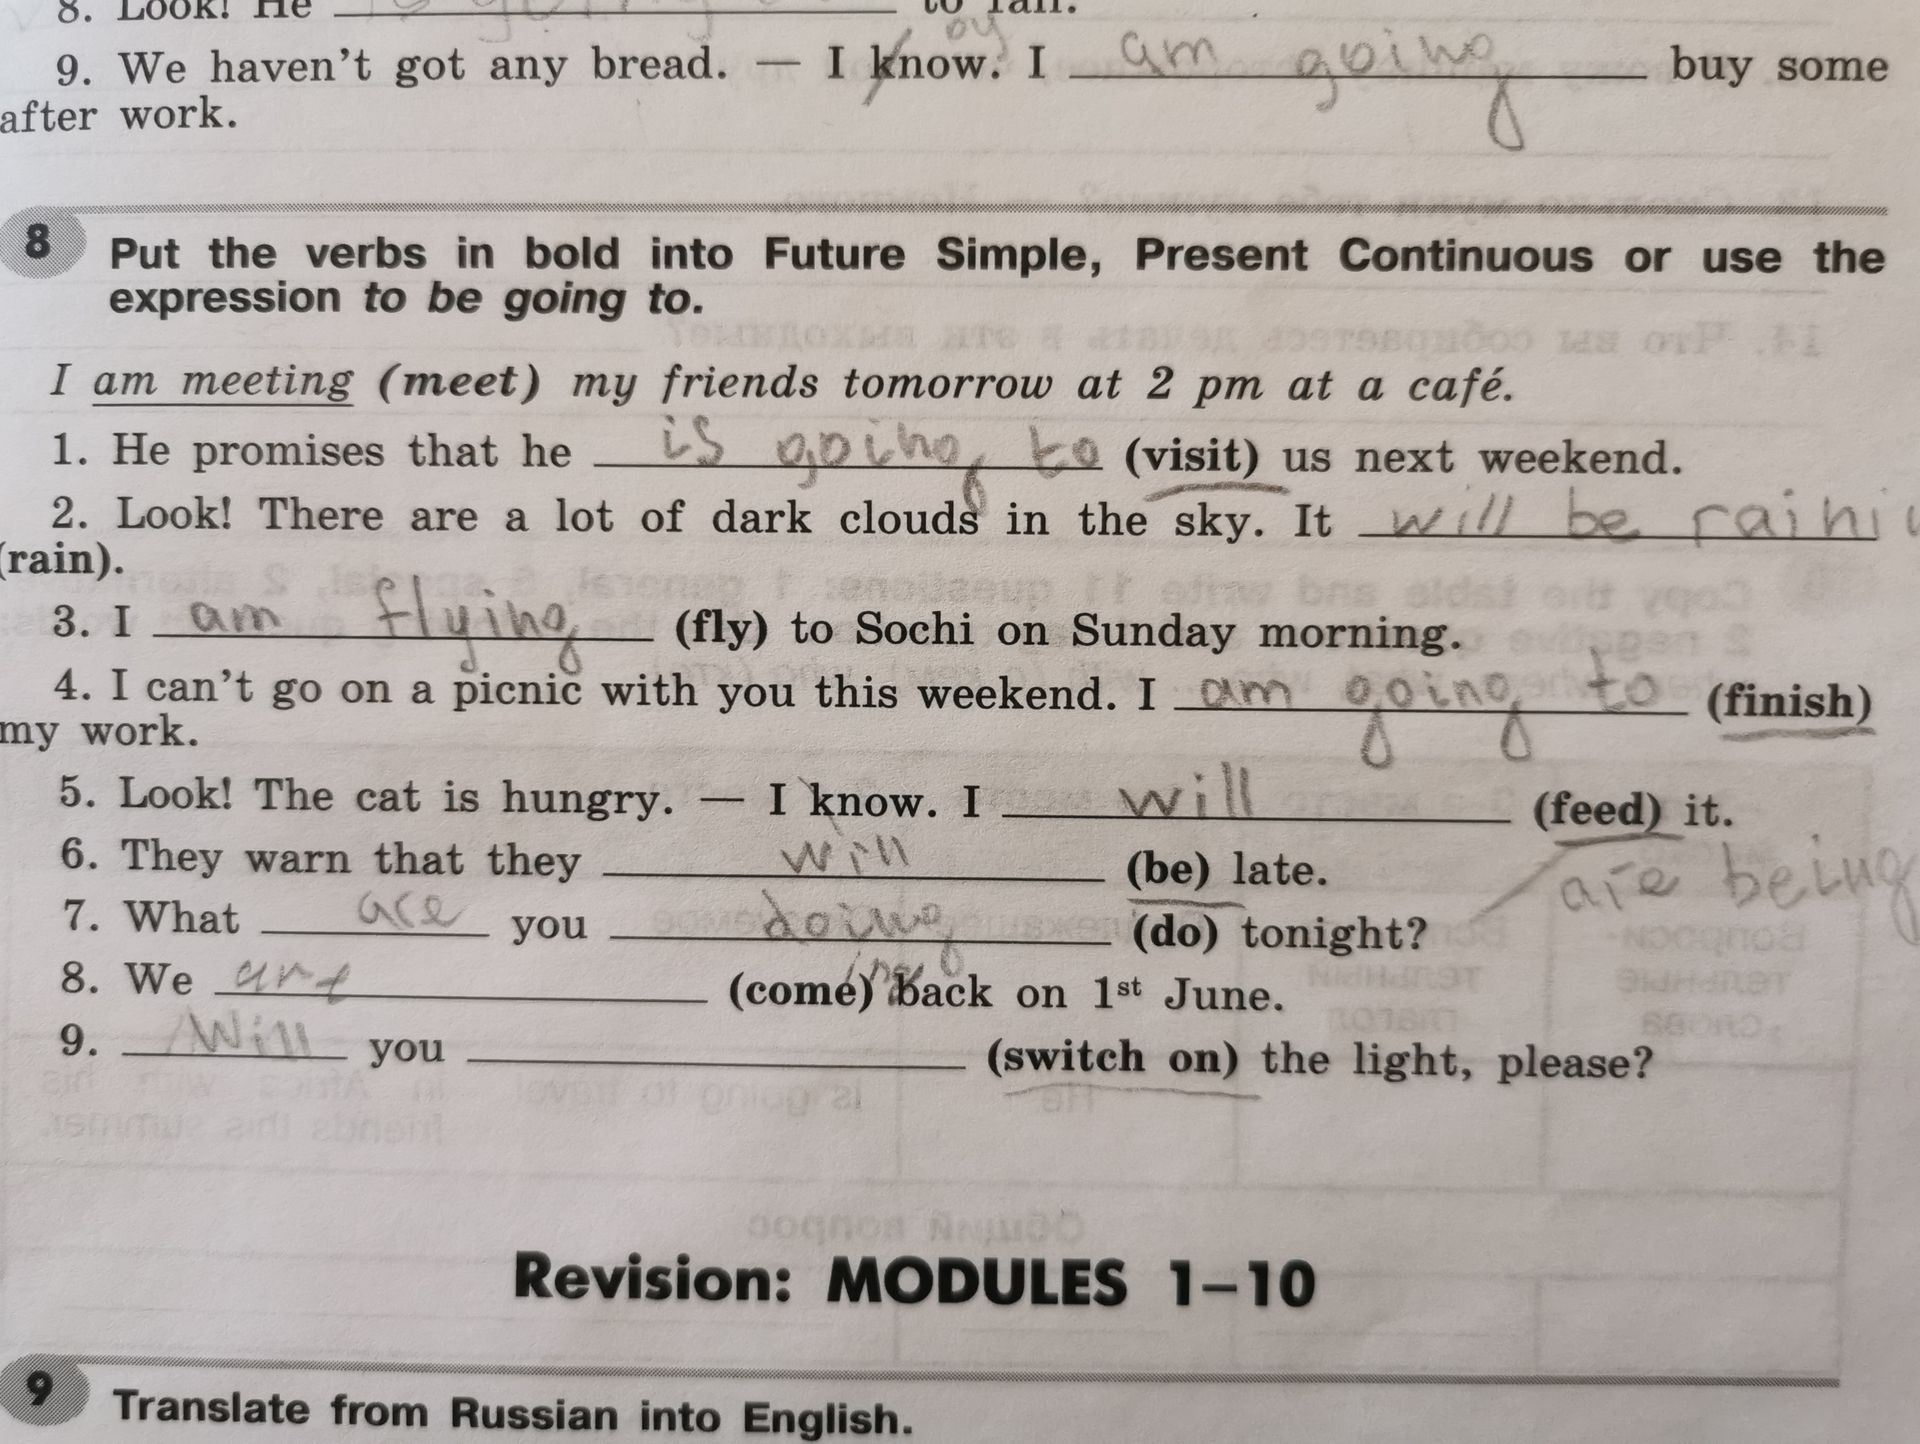 8. Look! He is going to fall.
by
9. We haven't got any bread. — I know. I am going buy some
after work.
8 Put the verbs in bold into Future Simple, Present Continuous or use the
expression to be going to.
I am meeting (meet) my friends tomorrow at 2 pm at a café.
1. He promises that he is going to (visit) us next weekend.
2. Look! There are a lot of dark clouds in the sky. It will be raini
(rain).
3. I am flying (fly) to Sochi on Sunday morning.
4. I can't go on a picnic with you this weekend. I am going to (finish)
my work.
5. Look! The cat is hungry. — I know. I will (feed) it.
6. They warn that they will (be) late.
are being
7. What are you doing (do) tonight?
ing
8. We are (come) back on 1st June.
9. Will you (switch on) the light, please?
Revision: MODULES 1–10
9 Translate from Russian into English.